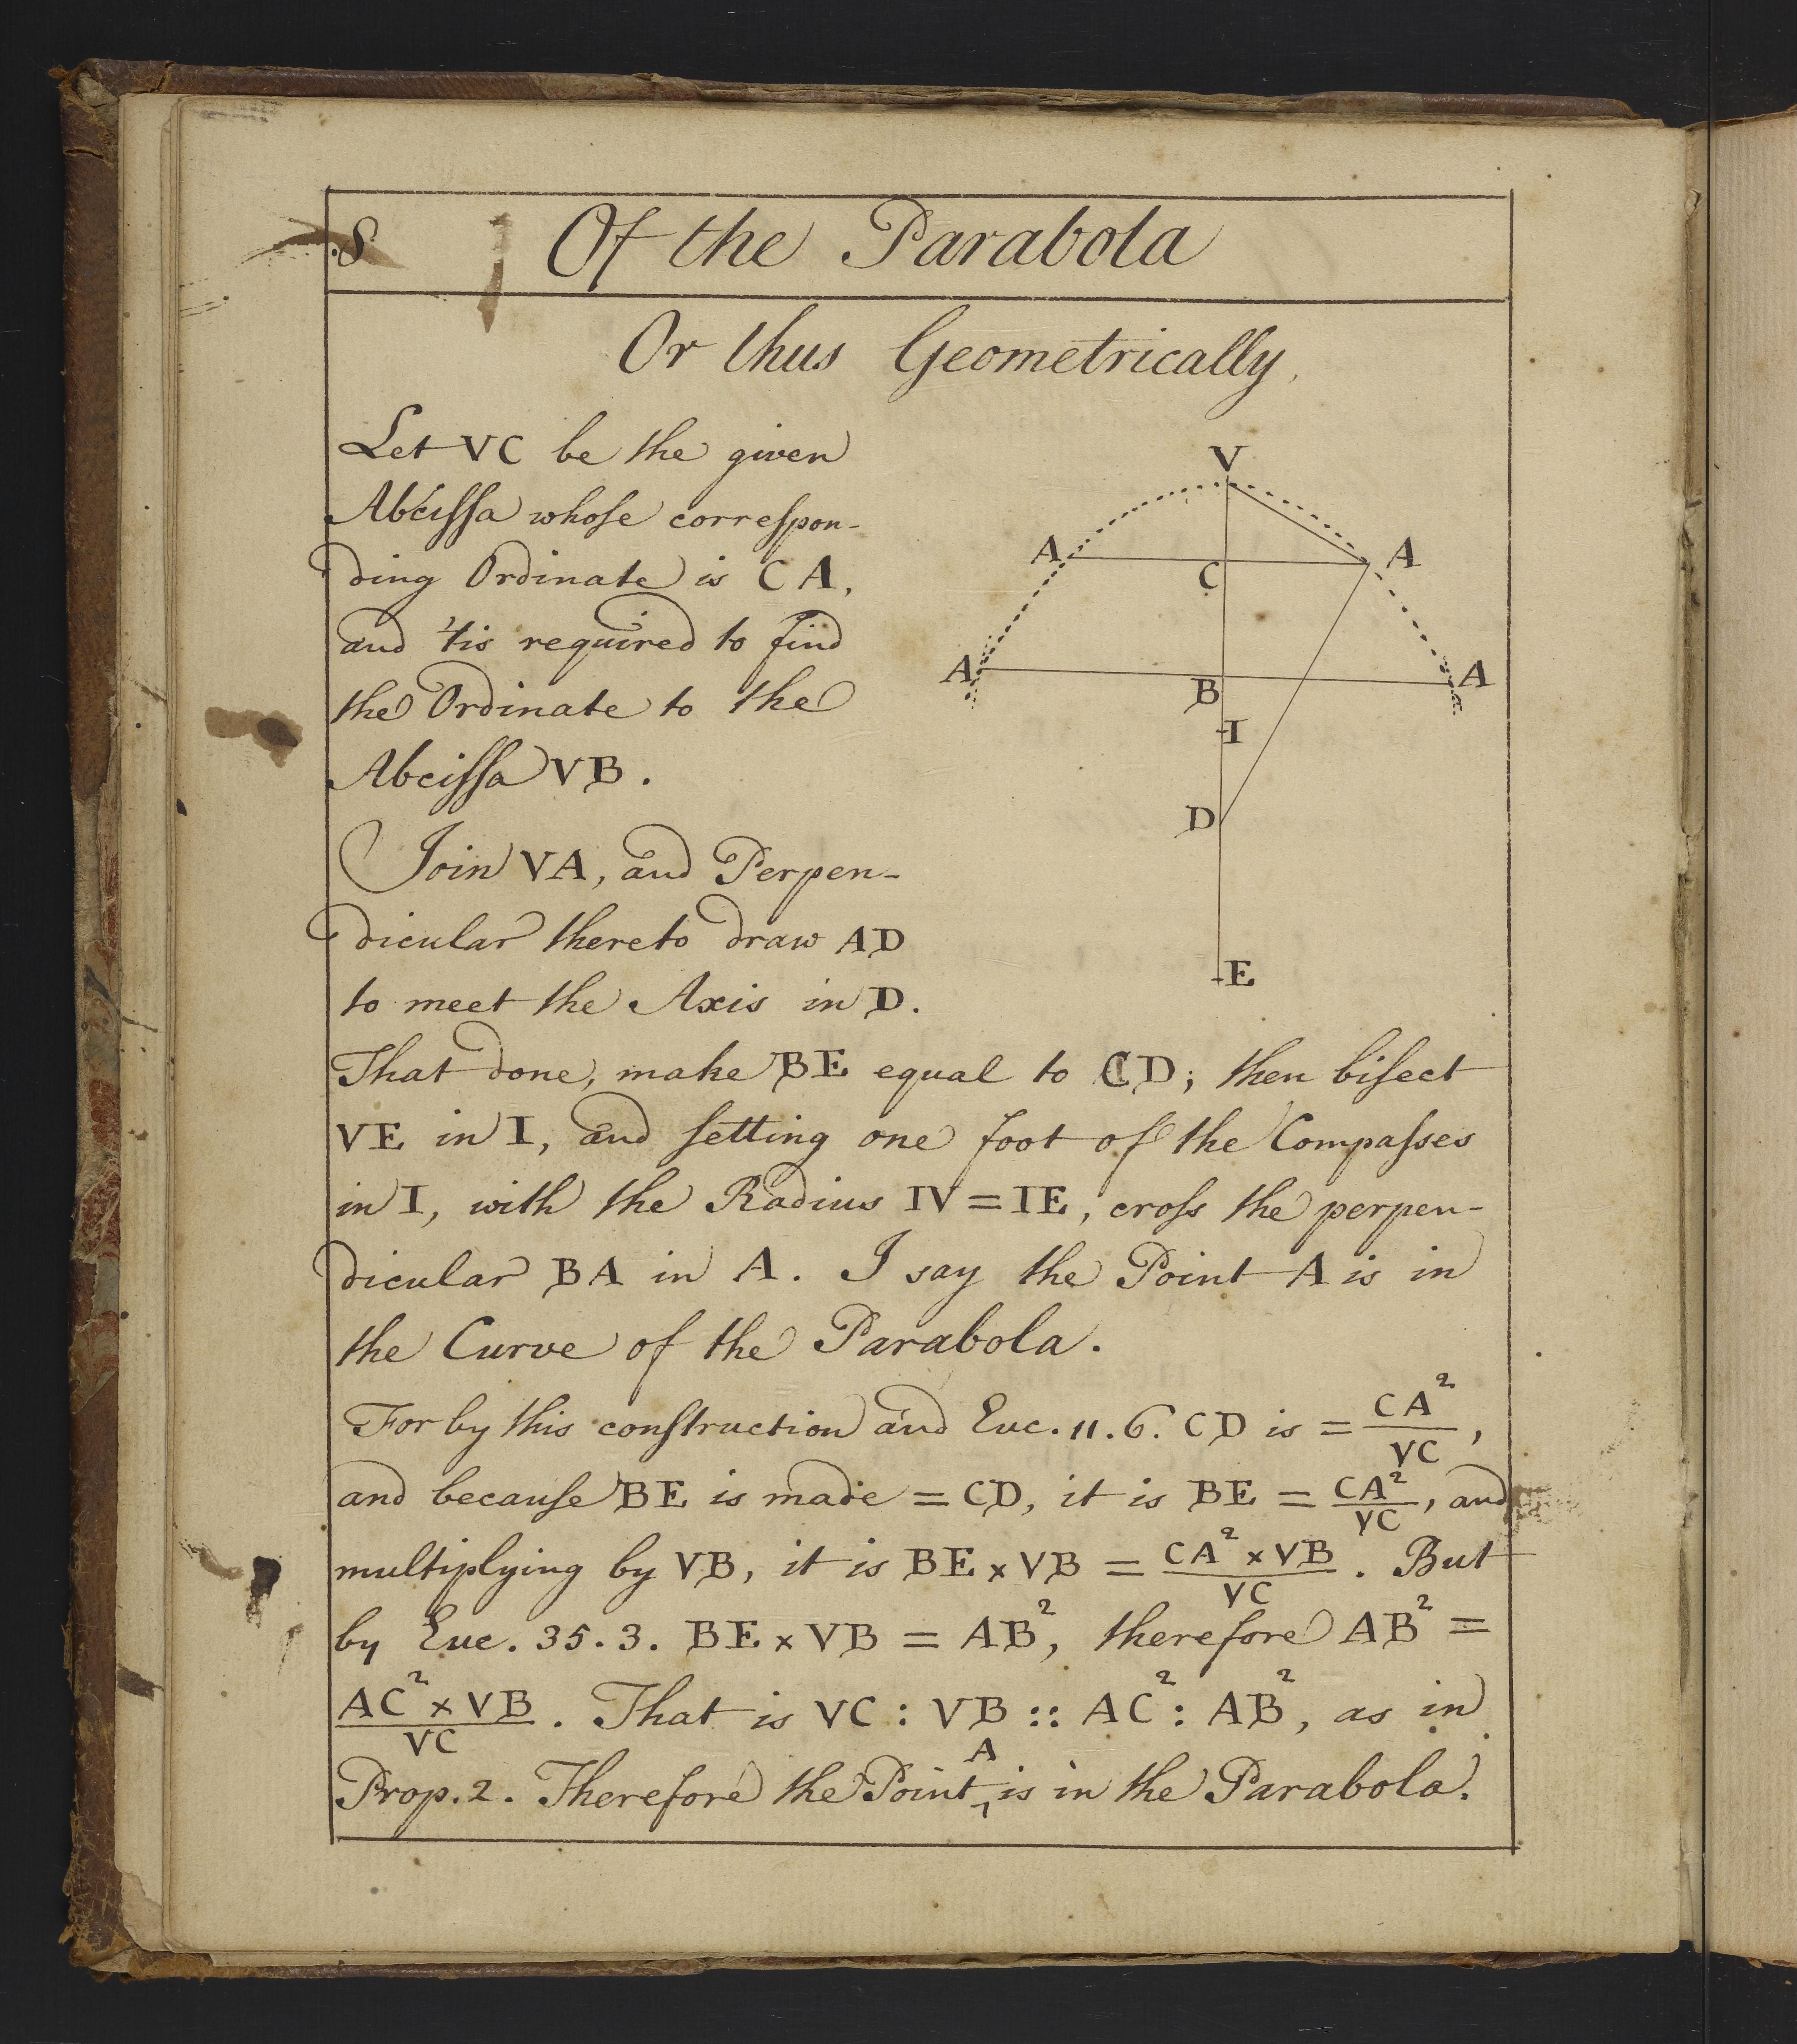 8 Of the Parabola
Or thus Geometrically,
Let VC be the given
Abcissa whose correspon-
ding Ordinate is CA,
and 'tis required to find
the Ordinate to the
Abcissa VB.
Join VA, and Perpen-
dicular thereto draw AD
to meet the Axis in D.
V
A
A
C
A
A
B
I
D
E
That done, make BE equal to CD; then bisect
VE in I, and setting one foot of the Compasses
in I, with the Radius IV = IE, cross the perpen-
dicular BA in A. I say the Point A is in
the Curve of the Parabola.
For by this construction and Euc. 11. 6. CD is = CA²/VC,
and because BE is made = CD, it is BE = CA²/VC, and
multiplying by VB, it is BE × VB = CA² × VB/VC. But
by Euc. 35. 3. BE × VB = AB², therefore AB² =
AC² × VB/VC. That is VC : VB :: AC² : AB², as in
Prop. 2. Therefore the Point A is in the Parabola.